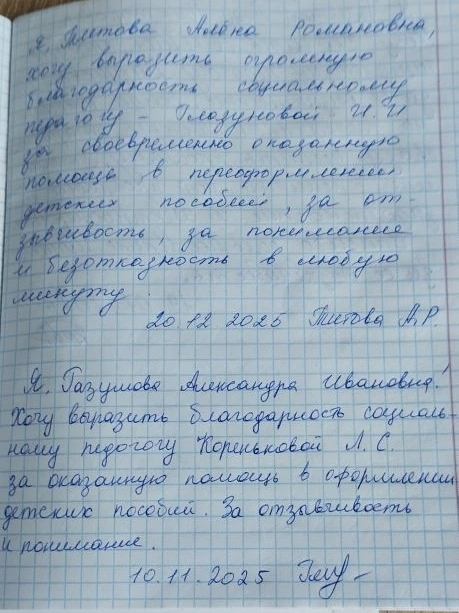 Я, Титова Алёна Романовна,
хочу выразить огромную
благодарность социальному
педагогу - Глазуновой И.И
за своевременно оказанную
помощь в переоформлении
детских пособий, за от-
зывчивость, за понимание
и безотказность в любую
минуту
20.12 2025 Титова А.Р.
Я. Газумова Александра Ивановна!
Хочу выразить благодарность социаль-
ному педогогу Кореньковой Л.С.
за оказанную помощь в оформлении
детских пособий. За отзывчивость
и понимание.
10.11.2025